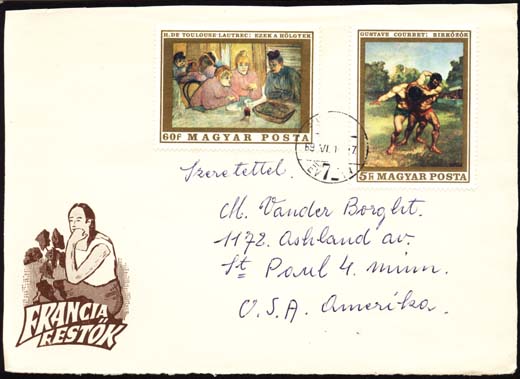 H. DE TOULOUSE-LAUTREC: EZEK A HÖLGYEK
60f MAGYAR POSTA
GUSTAVE COURBET: BIRKÓZÓK
5Ft MAGYAR POSTA
69 VI.
7
Szeretettel.
M. Vander Borght.
1172. Ashland av.
St Paul 4. minn.
U.S.A. Amerika.
FRANCIA
FESTŐK